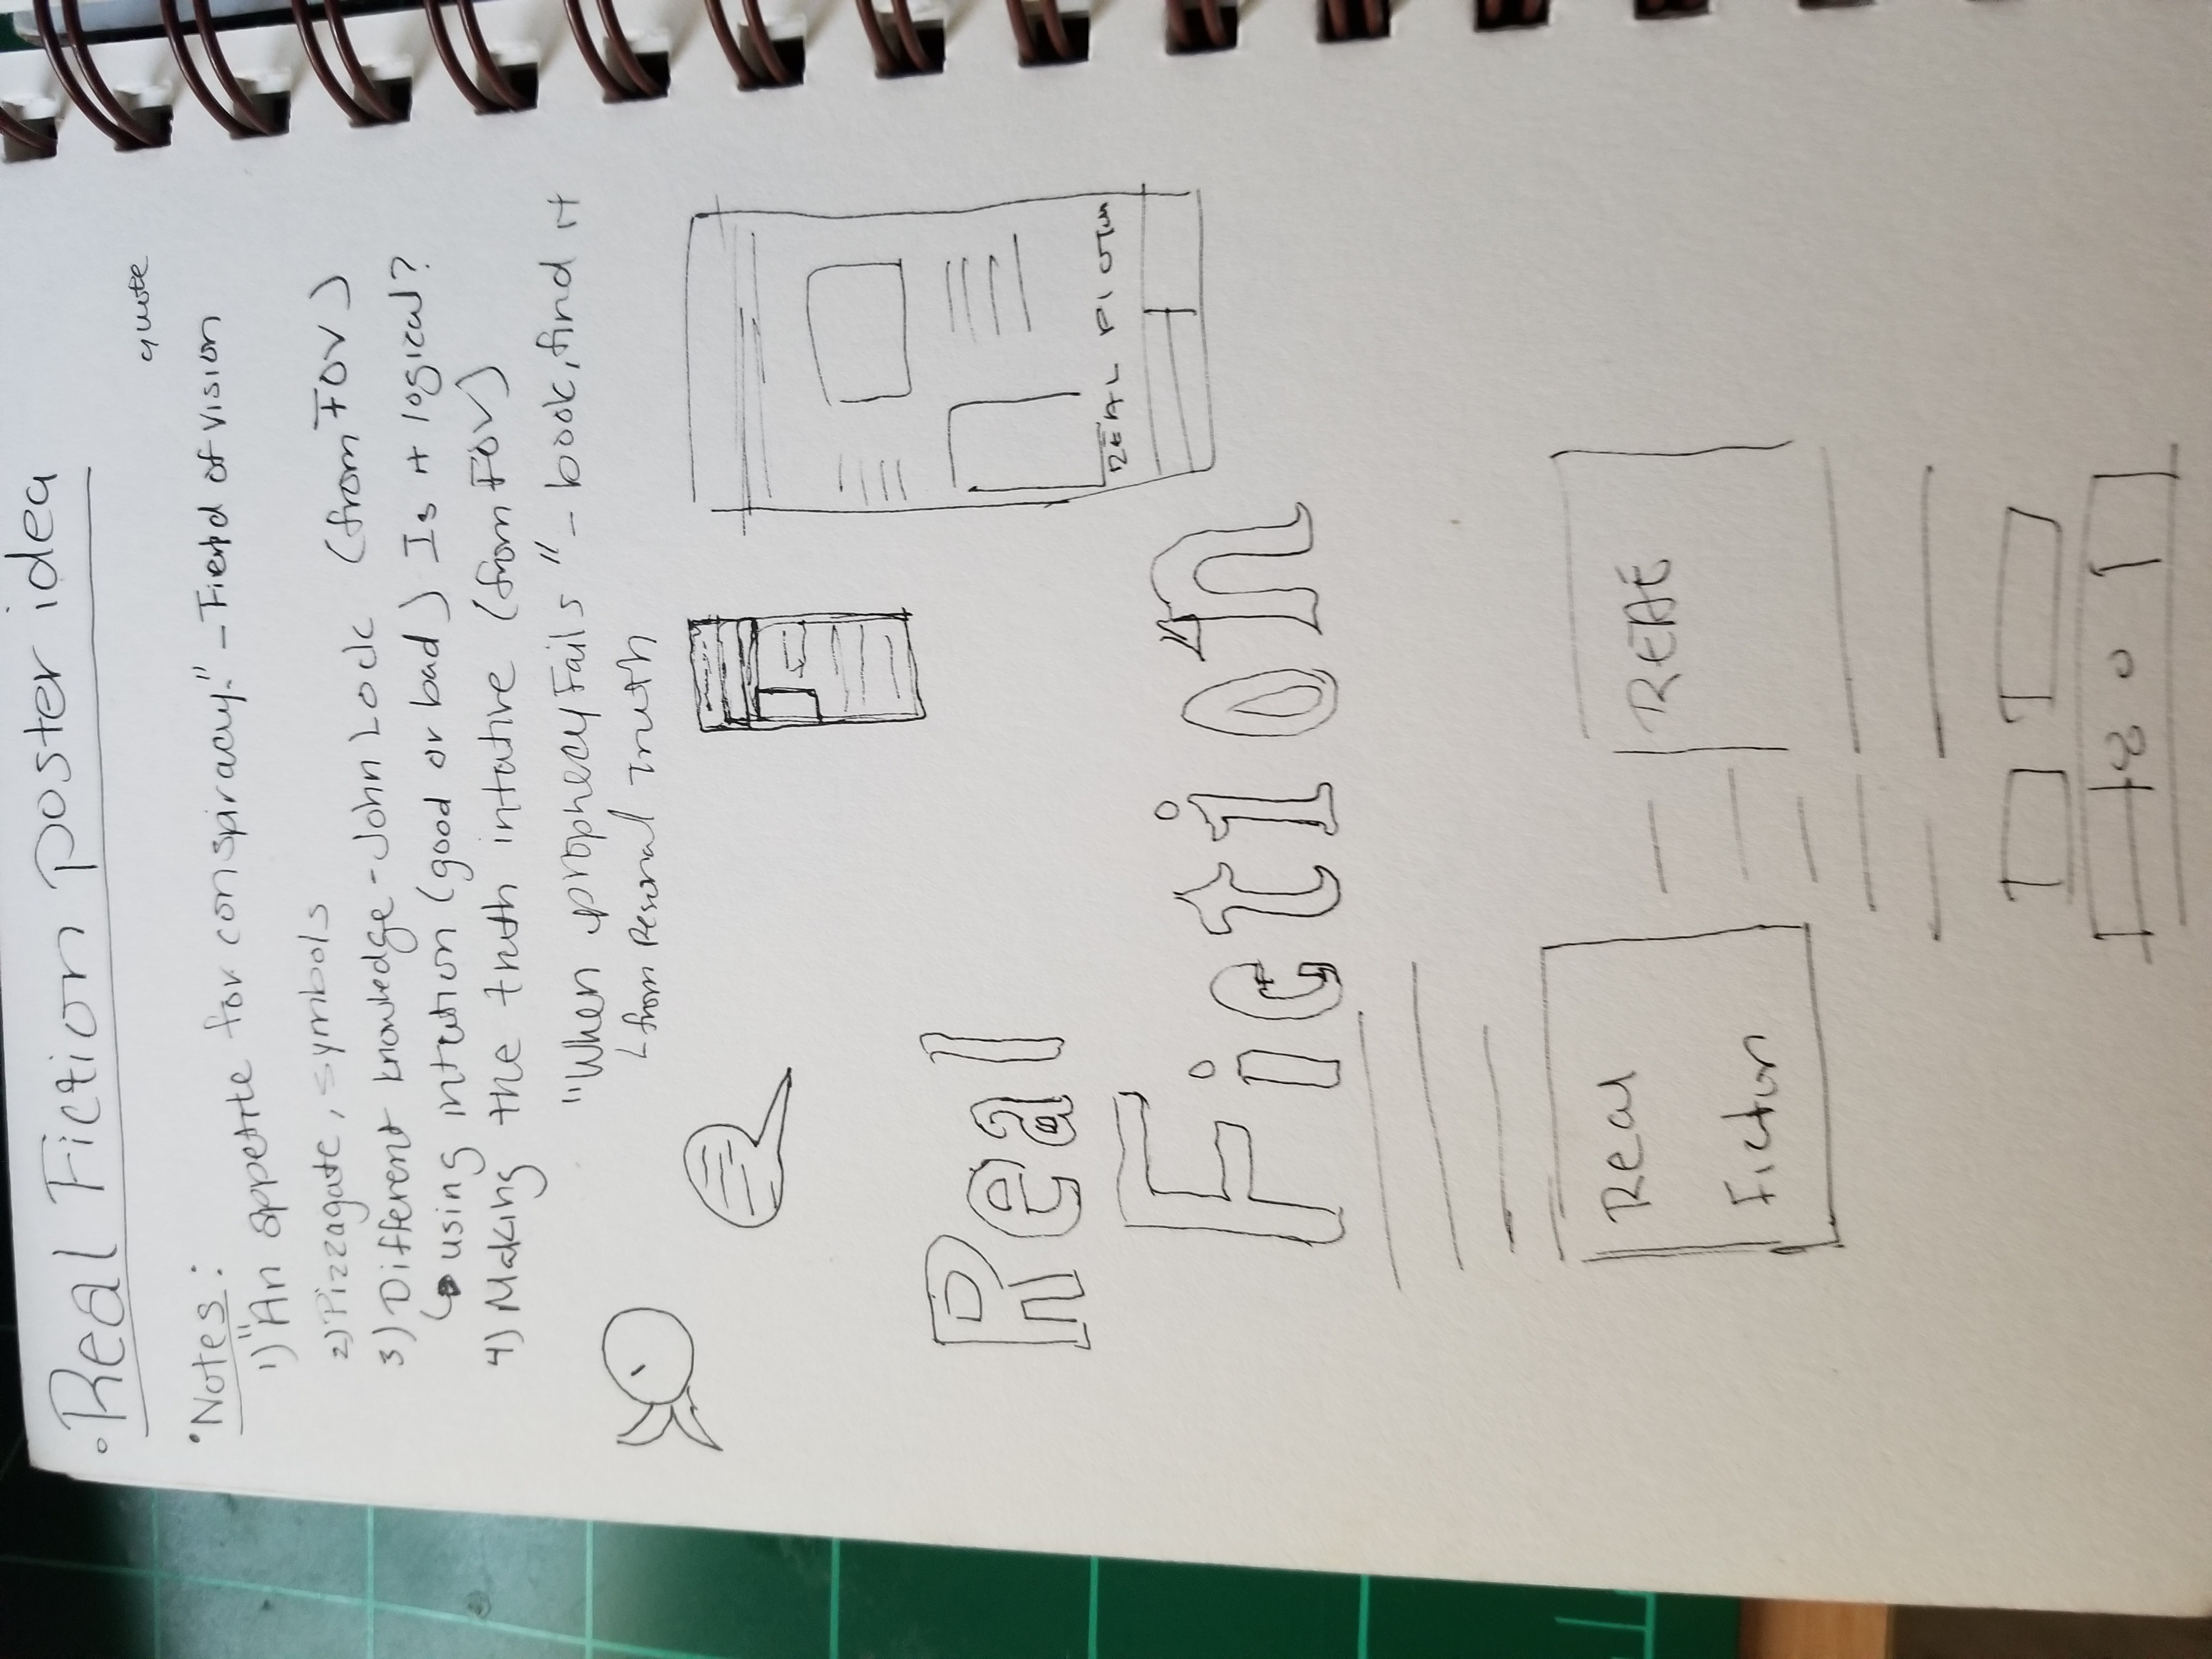 • Real Fiction poster idea
quote
• Notes:
1) "An appetite for conspiracy." - Field of vision
2) Pizzagate, symbols
3) Different knowledge - John Lock (from FOV)
↳ using intution (good or bad) Is it logical?
4) Making the truth intative (from FOV)
"When prophecy Fails" - book, find it
↳ from Personal Truth
REAL FICTION
Real
Fiction
Real
Fiction
REAL